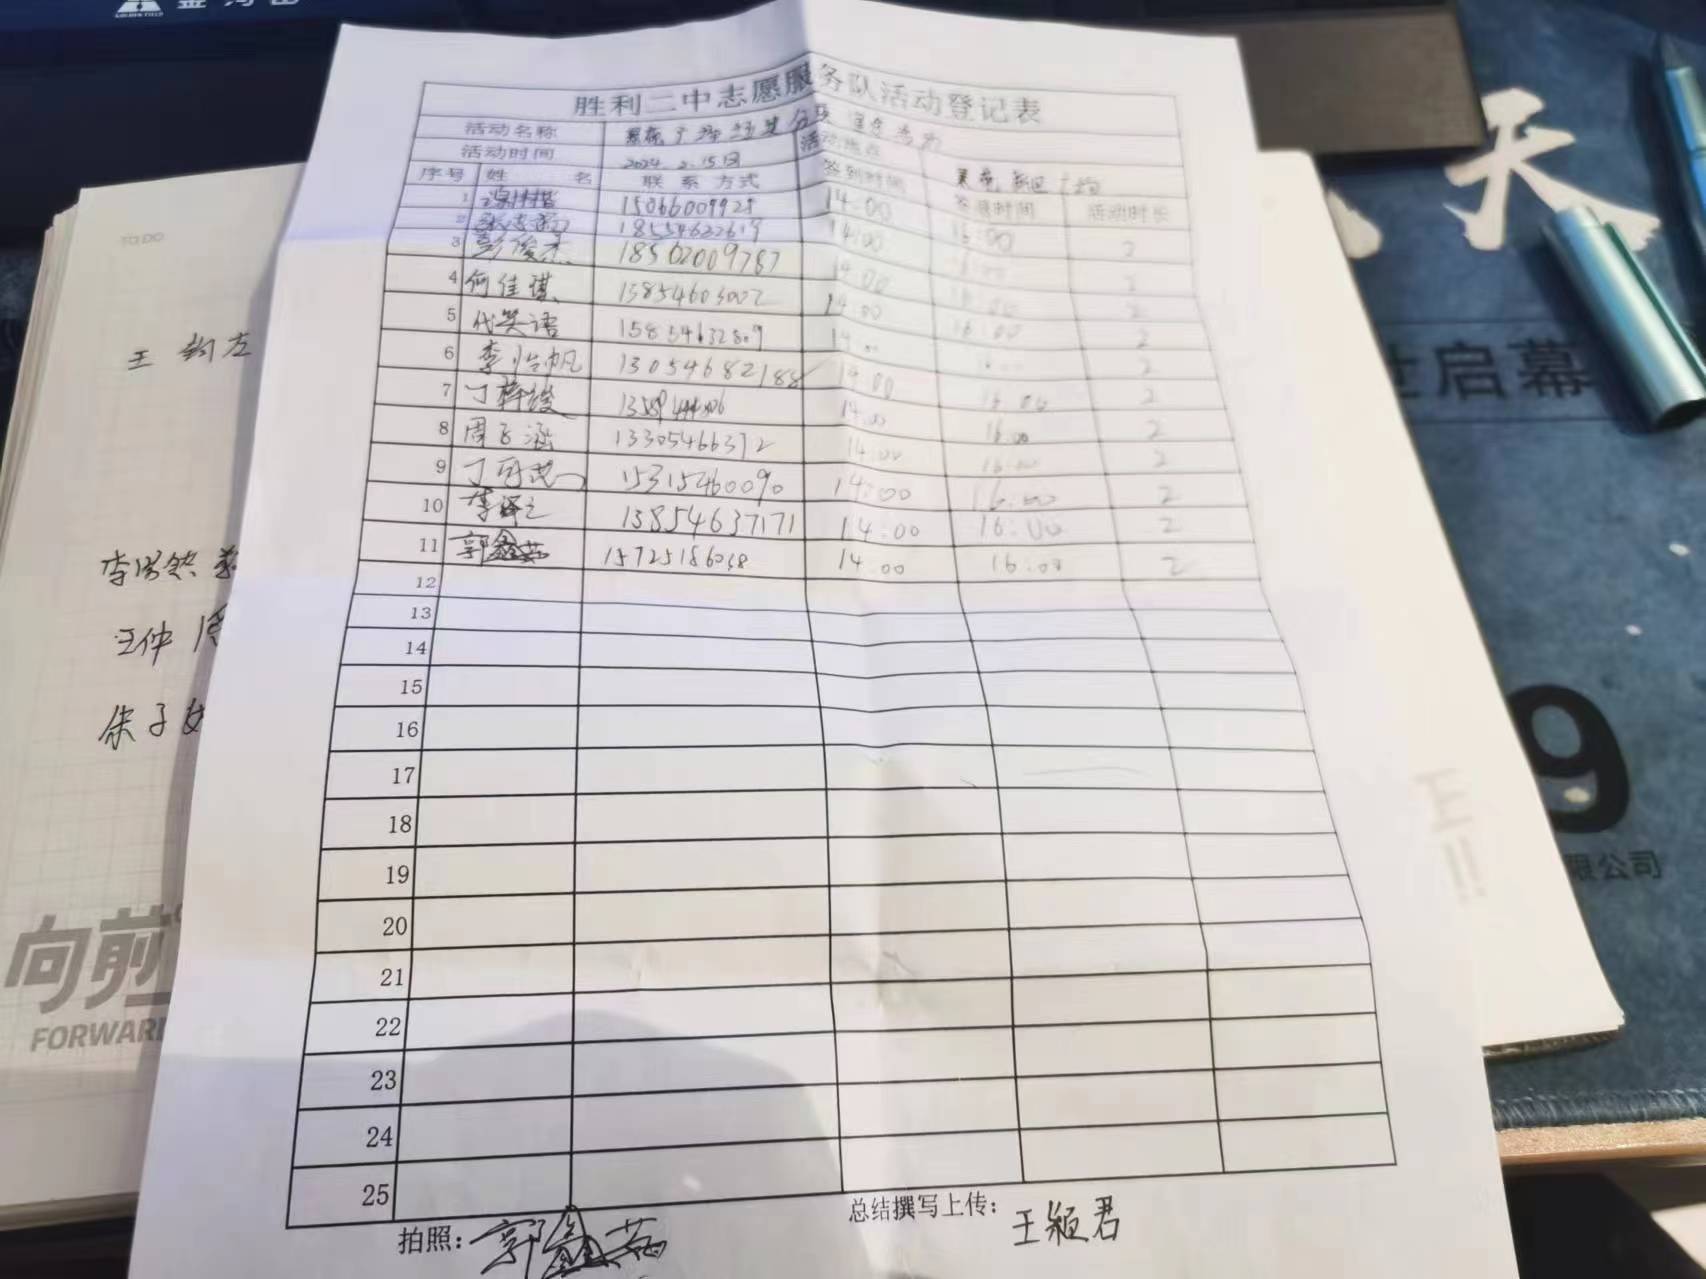 GOLDEN FIELD
天
启幕
9
限公司
TO DO
王
李
王仲
朱子
向前
FORWARD
胜利二中志愿服务队活动登记表
活动名称
活动时间 2024.2.15日 活动地点
序号 姓名 联系方式 签到时间 签退时间 活动时长
1 15066009929 14:00 16:00 2
2 18554622619 14:00 2
3 彭俊杰 18562009787 14:00 16:00 2
4 何佳琪 13854603002 14:00 16:00 2
5 代笑语 15854632809 14:00 2
6 李怡帆 13054682188 14:00 16:00 2
7 丁 14:00 16:00 2
8 周飞涵 13305466392 14:00 16:00 2
9 丁 15315460090 14:00 16:00 2
10 李泽之 13854637171 14:00 16:00 2
11 郭鑫茹 15725186038 14:00 16:00 2
12
13
14
15
16
17
18
19
20
21
22
23
24
25
拍照: 郭鑫茹 总结撰写上传: 王颖君